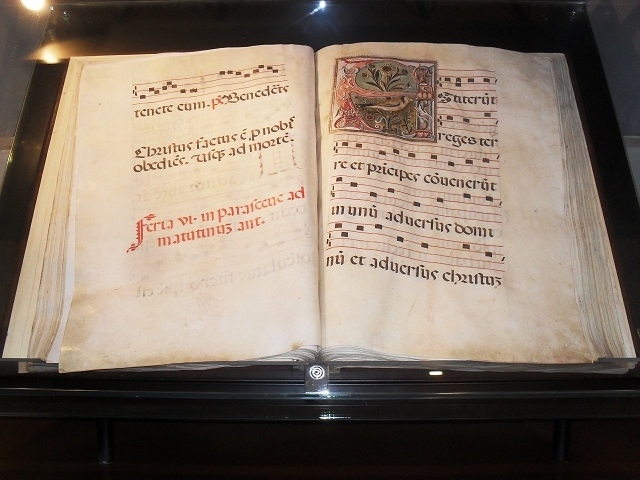 tenete eum. ps Benedcts
Christus factus ē p nobs
obediēs. usqz ad mortē.
Feria vi. in parasceue ad
matutinuz ant.
Stiterūt
reges ter
re et prīcipes cōuenerūt
in unū aduersus domi
nū et aduersus christuz